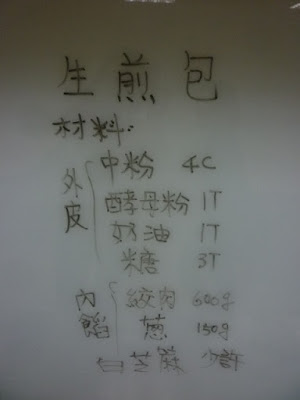 生煎包
材料:
外皮 中粉 4C
酵母粉 1T
奶油 1T
糖 3T
內餡 絞肉 600g
蔥 150g
白芝蔴 少許